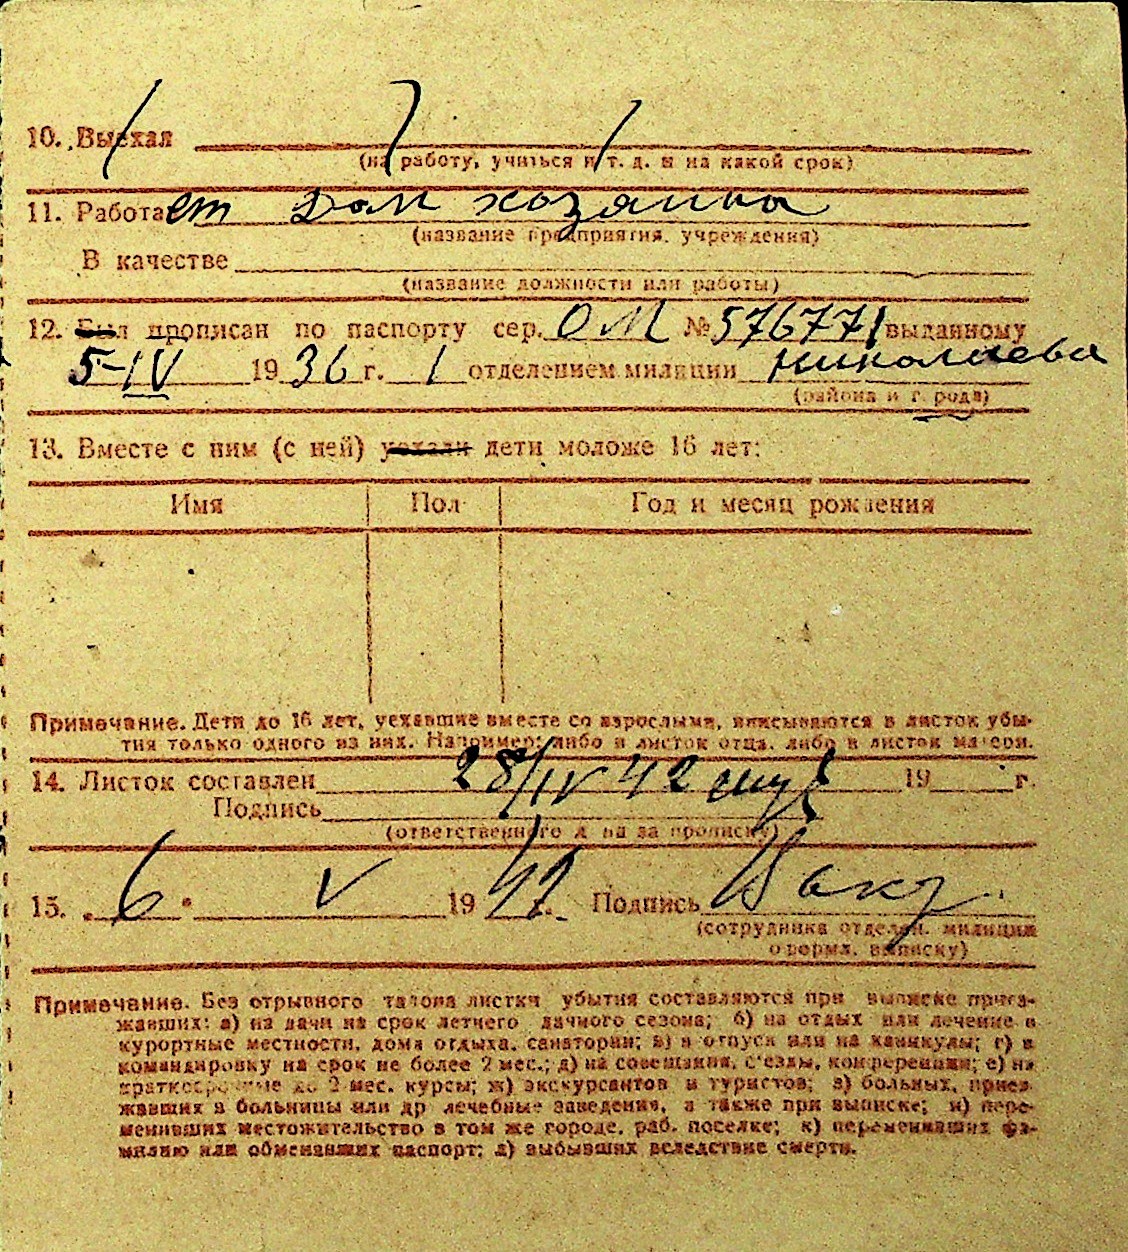 10. Выехал
(на работу, учиться и т. д. и на какой срок)
11. Работает Дом хозяйка
(название предприятия, учреждения)
В качестве
(название должности или работы)
12. Был прописан по паспорту сер. ОМ № 576771 выданному
5-IV 1936 г. 1 отделением милиции Николаева
(района и города)
13. Вместе с ним (с ней) уехали дети моложе 16 лет:
Имя Пол Год и месяц рождения
Примечание. Дети до 16 лет, уехавшие вместе со взрослыми, вписываются в листок убы-
тия только одного из них. Например: либо в листок отца, либо в листок матери.
14. Листок составлен 28/IV 42 19 г.
Подпись
(ответственного д. па за прописку)
15. 6 V 1942 Подпись
(сотрудника отделен. милиции
оформл. выписку)
Примечание. Без отрывного талона листки убытия составляются при выписке приез-
жавших: а) на дачи на срок летнего дачного сезона; б) на отдых или лечение в
курортные местности, дома отдыха, санатории; в) в отпуск или на каникулы; г) в
командировку на срок не более 2 мес.; д) на совещания, с'езды, конференции; е) на
краткосрочные до 2 мес. курсы; ж) экскурсантов и туристов; з) больных, приез-
жавших в больницы или др лечебные заведения, а также при выписке; и) пере-
менивших местожительство в том же городе, раб. поселке; к) переменивших фа-
милию или обменявших паспорт; л) выбывших вследствие смерти.